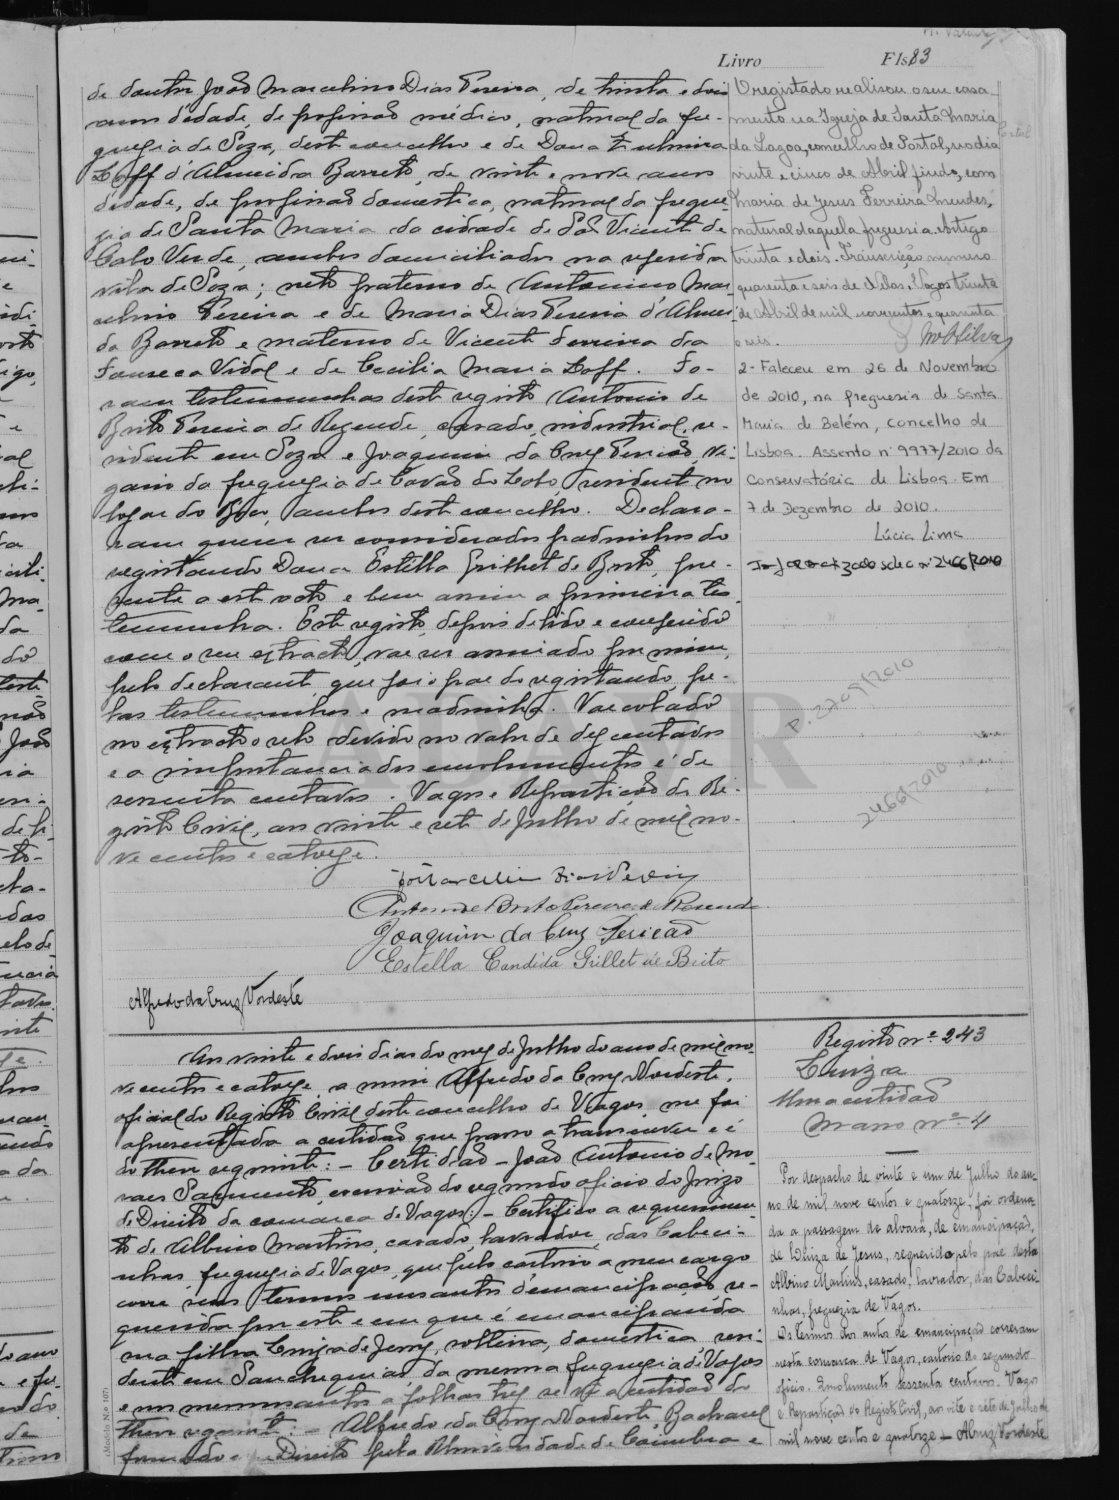 Livro Fls 83
de doutor João Marcelino Dias Pereira, de trinta e dois
anos d'edade, de profissão médico, natural da fre-
guesia de Soza, deste concelho e de Dona Zulmira
Loff d'Almeida Barreto, de vinte e nove anos
dedade, de profissão domestica, natural da fregue
zia de Santa Maria da cidade de São Vicente de
Cabo Verde, ambos domiciliados na referida
vila de Soza; neto paterno de Antonino Mar-
celino Pereira e de Maria Dias Pereira d'Almei
da Barreto e materno de Vicente Ferreira da
Fonseca Vidal e de Cecilia Maria Loff. Fo-
ram testemunhas deste registo Antonio de
Brito Pereira de Rezende, casado, industrial, re-
sidente em Soza e Joaquim da Cruz Pericão, vi-
gario da freguesia de Covão do Lobo, residente no
logar do Boco, ambos deste concelho. Declara-
ram querer ser considerados padrinhos do
registando Dona Estella Grilhet de Brito, pre-
sente a este acto e bem assim a primeira tes
temunha. Este registo, depois de lido e conferido
com o seu extracto, vae ser assinado por mim,
pelo declarante, que foi o pae do registando, pe-
las testemunhas e madrinha. Vae colado
no extracto o selo devido no valor de dez centavos
e a importancia dos emolumentos é de
sessenta centavos. Vagos e Repartição do Re-
gisto Civil, aos vinte e sete de Julho de mil no-
ve centos e catorze.
João Marcelino Dias Pereira
Antonio de Brito Pereira de Resende
Joaquim da Cruz Pericão
Estella Candida Grillet de Brito
Alfredo da Cruz Nordeste
O registado realisou o seu casa-
mento na Igreja de Santa Maria
da Lagoa, concelho de Portel, no dia
vinte e cinco de Abril findo, com
Maria de Jesus Ferreira Mendes,
natural daquela freguesia. Artigo
trinta e dois. Transcrição numero
quarenta e seis de Vagos trinta
de Abril de mil novecentos e quarenta
e seis.
2- Faleceu em 26 de Novembro
de 2010, na freguesia de Santa
Maria de Belém, concelho de
Lisboa. Assento nº 9977/2010 da
Conservatória de Lisboa. Em
7 de Dezembro de 2010.
Lúcia Lima
P. 2709/2010
2466/2010
Aos vinte e dois dias do mez de Julho do ano de mil no-
ve centos e catorze a mim Alfredo da Cruz Nordeste,
oficial do Registo Civil deste concelho de Vagos, me foi
apresentada a certidão que passo a transcrever e é
do theor seguinte: - Certidão - João Antonio de Mo-
raes Sarmento, escrivão do segundo oficio do Juizo
de Direito da comarca de Vagos: - Certifico a requerimen-
to de Albino Martins, casado, lavrador, das Cabeci-
nhas, freguesia de Vagos, que pelo cartorio a meu cargo
corre seus termos uns autos d'emancipação re-
querida por este e em que é emancipanda
sua filha Luiza de Jesus, solteira, domestica, resi-
dente em, da mesma freguesia de Vagos
e nos mesmos autos a folhas trez se vê a certidão do
theor seguinte: - Alfredo da Cruz Nordeste, Bacharel
formado em Direito pela Universidade de Coimbra e
Registo nº 243
Luiza
Uma certidão
Maço nº 4
Por despacho de vinte e um de Julho do an-
no de mil nove centos e quatorze, foi ordena-
da a passagem de alvará, de emancipação,
de Luiza de Jesus, requerida pelo pae desta
Albino Martins, casado, lavrador, das Cabeci-
nhas, freguezia de Vagos.
Os termos dos autos de emancipação correram
nesta comarca de Vagos, cartorio do segundo
oficio. Emolumento sessenta centavos. Vagos
e Repartição do Registo Civil, aos vinte e sete de Julho de
mil nove centos e quatorze - ACruz Nordeste
(Modelo N.º 107)